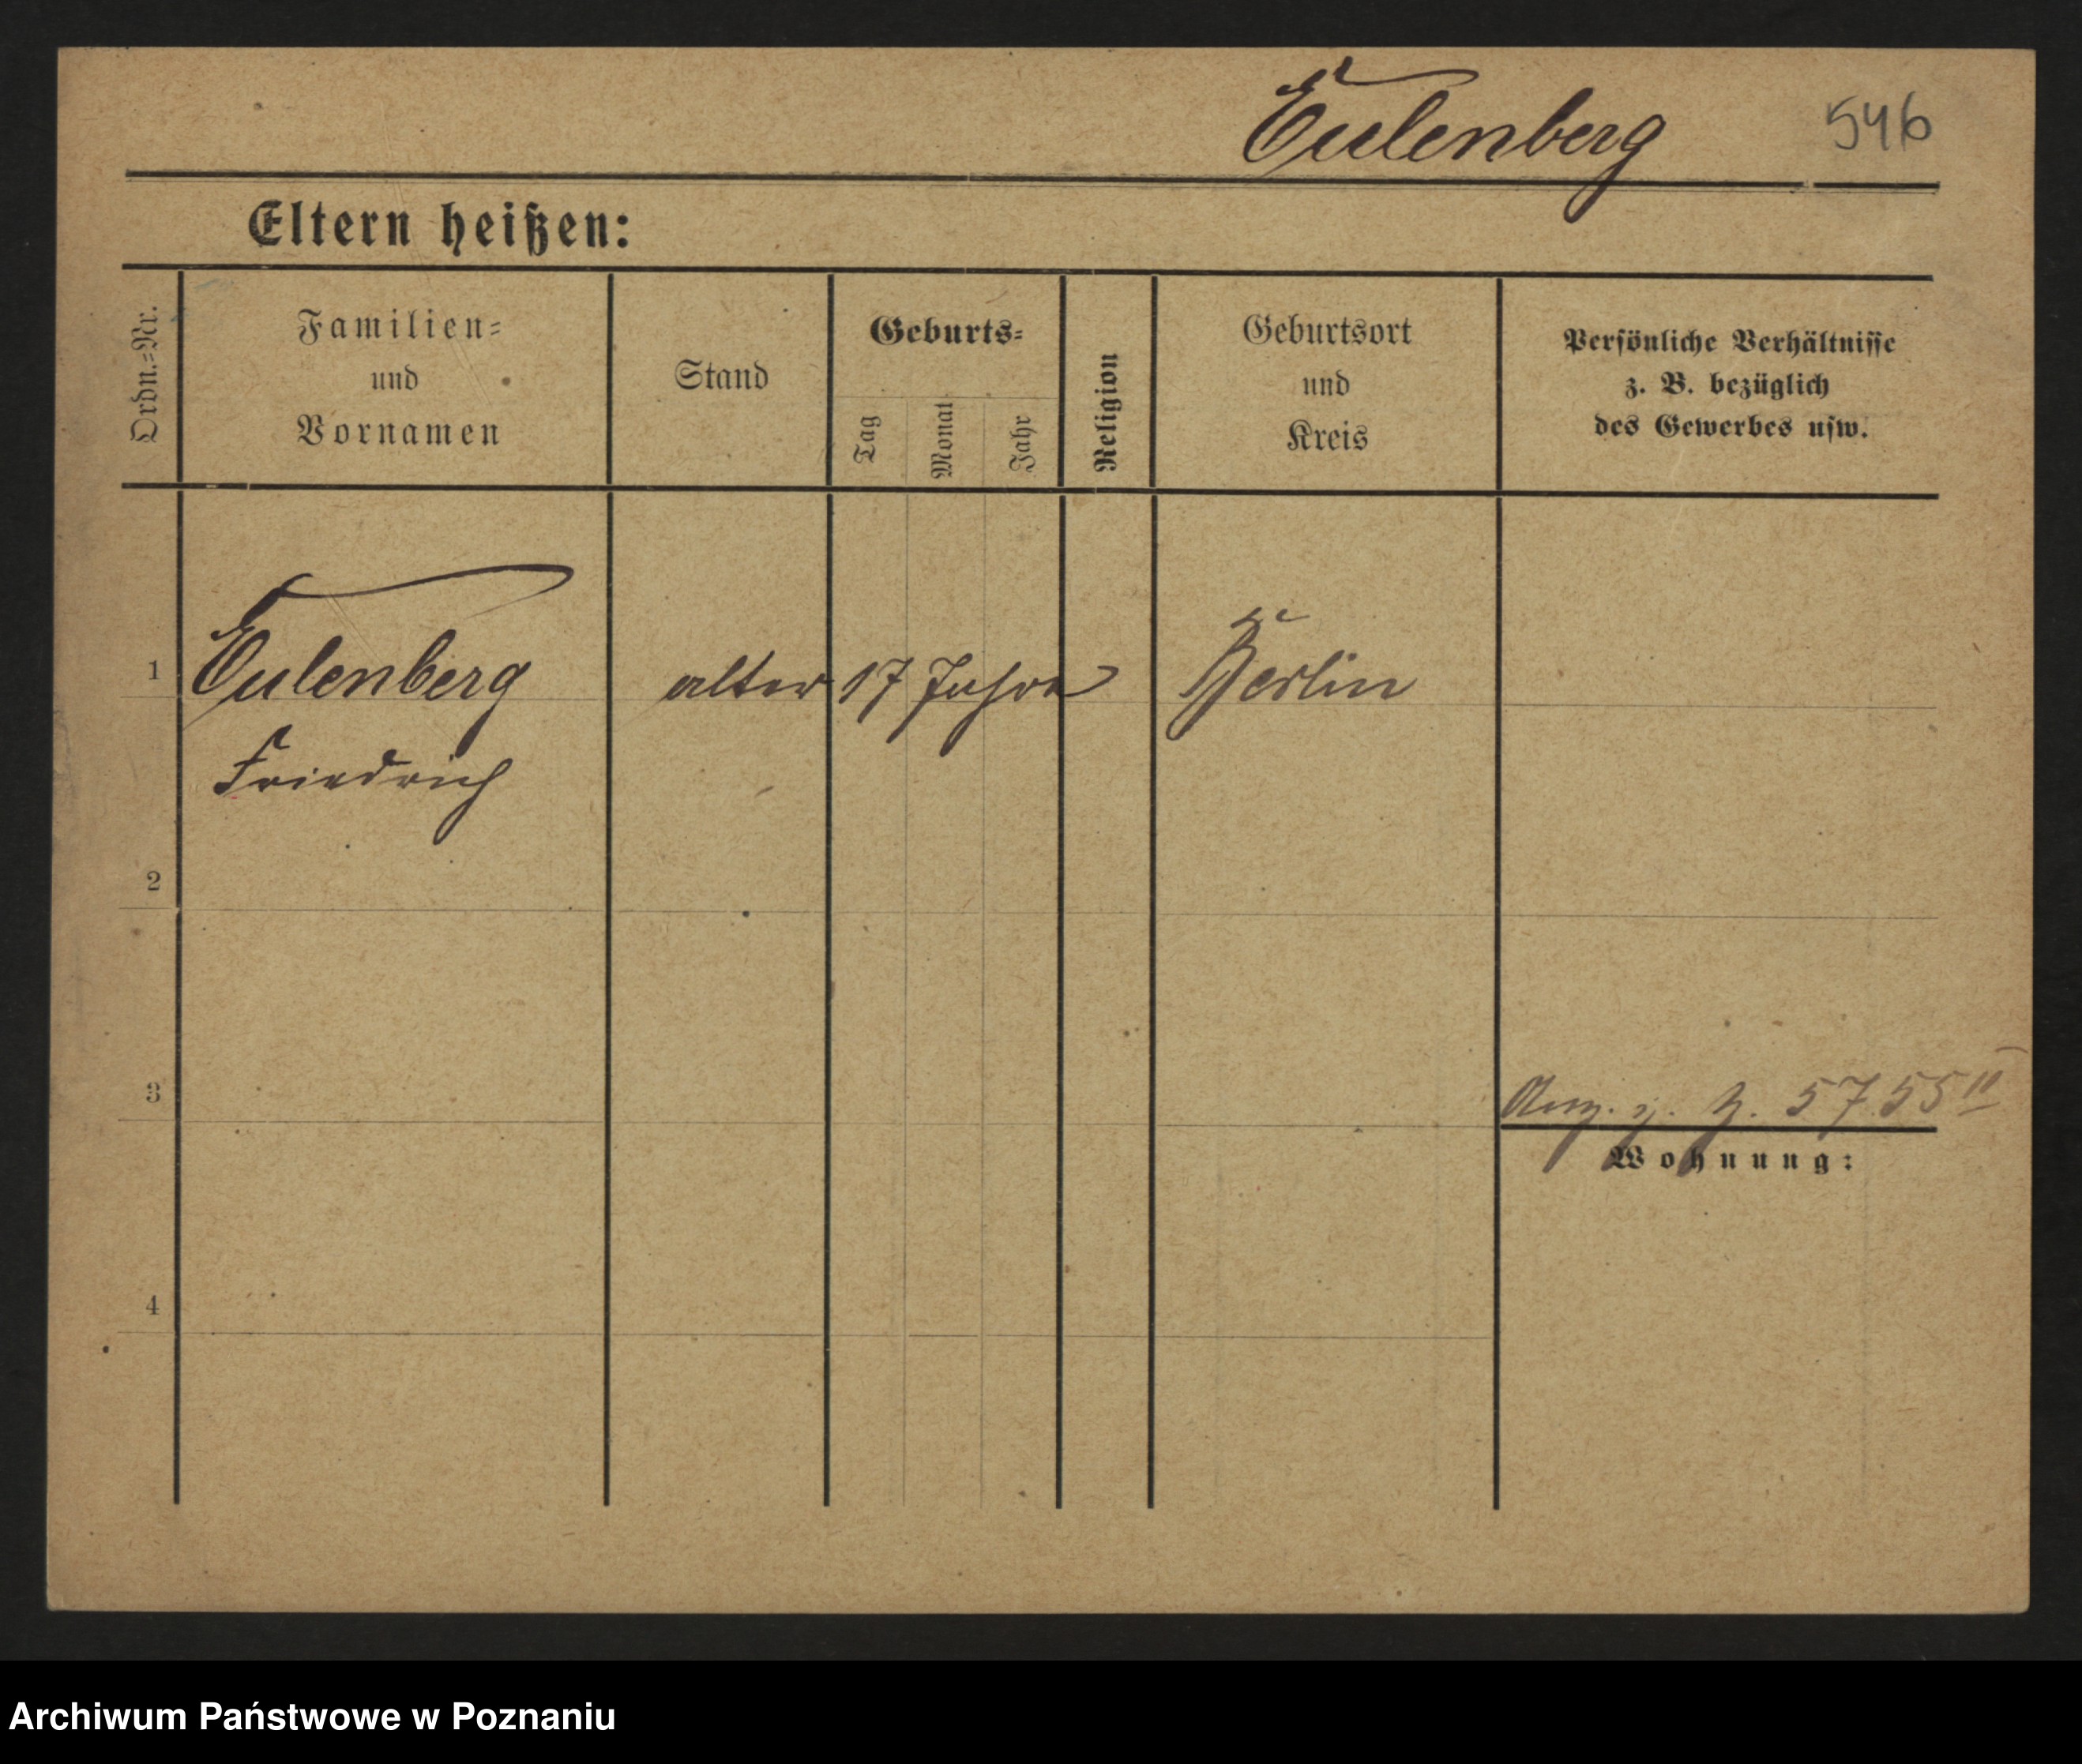 Eulenberg 546
Eltern heißen:
Ordn.=Nr.
Familien=
und
Vornamen
Stand
Geburts=
Tag
Monat
Jahr
Religion
Geburtsort
und
Kreis
Persönliche Verhältnisse
z. B. bezüglich
des Gewerbes usw.
1 Eulenberg alter 17 Jahre Berlin
Friedrich
2
3
5755 II
Wohnung:
4
Archiwum Państwowe w Poznaniu